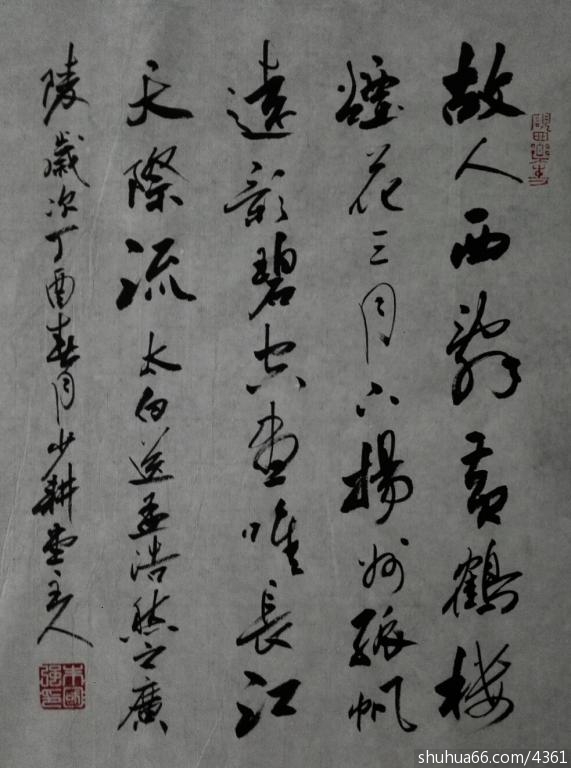 故人西辞黄鹤楼
煙花三月下揚州孤帆
遠影碧空盡唯長江
天際流 太白送孟浩然之廣
陵 歲次丁酉春月少耕堂主人
shuhua66.com/4361